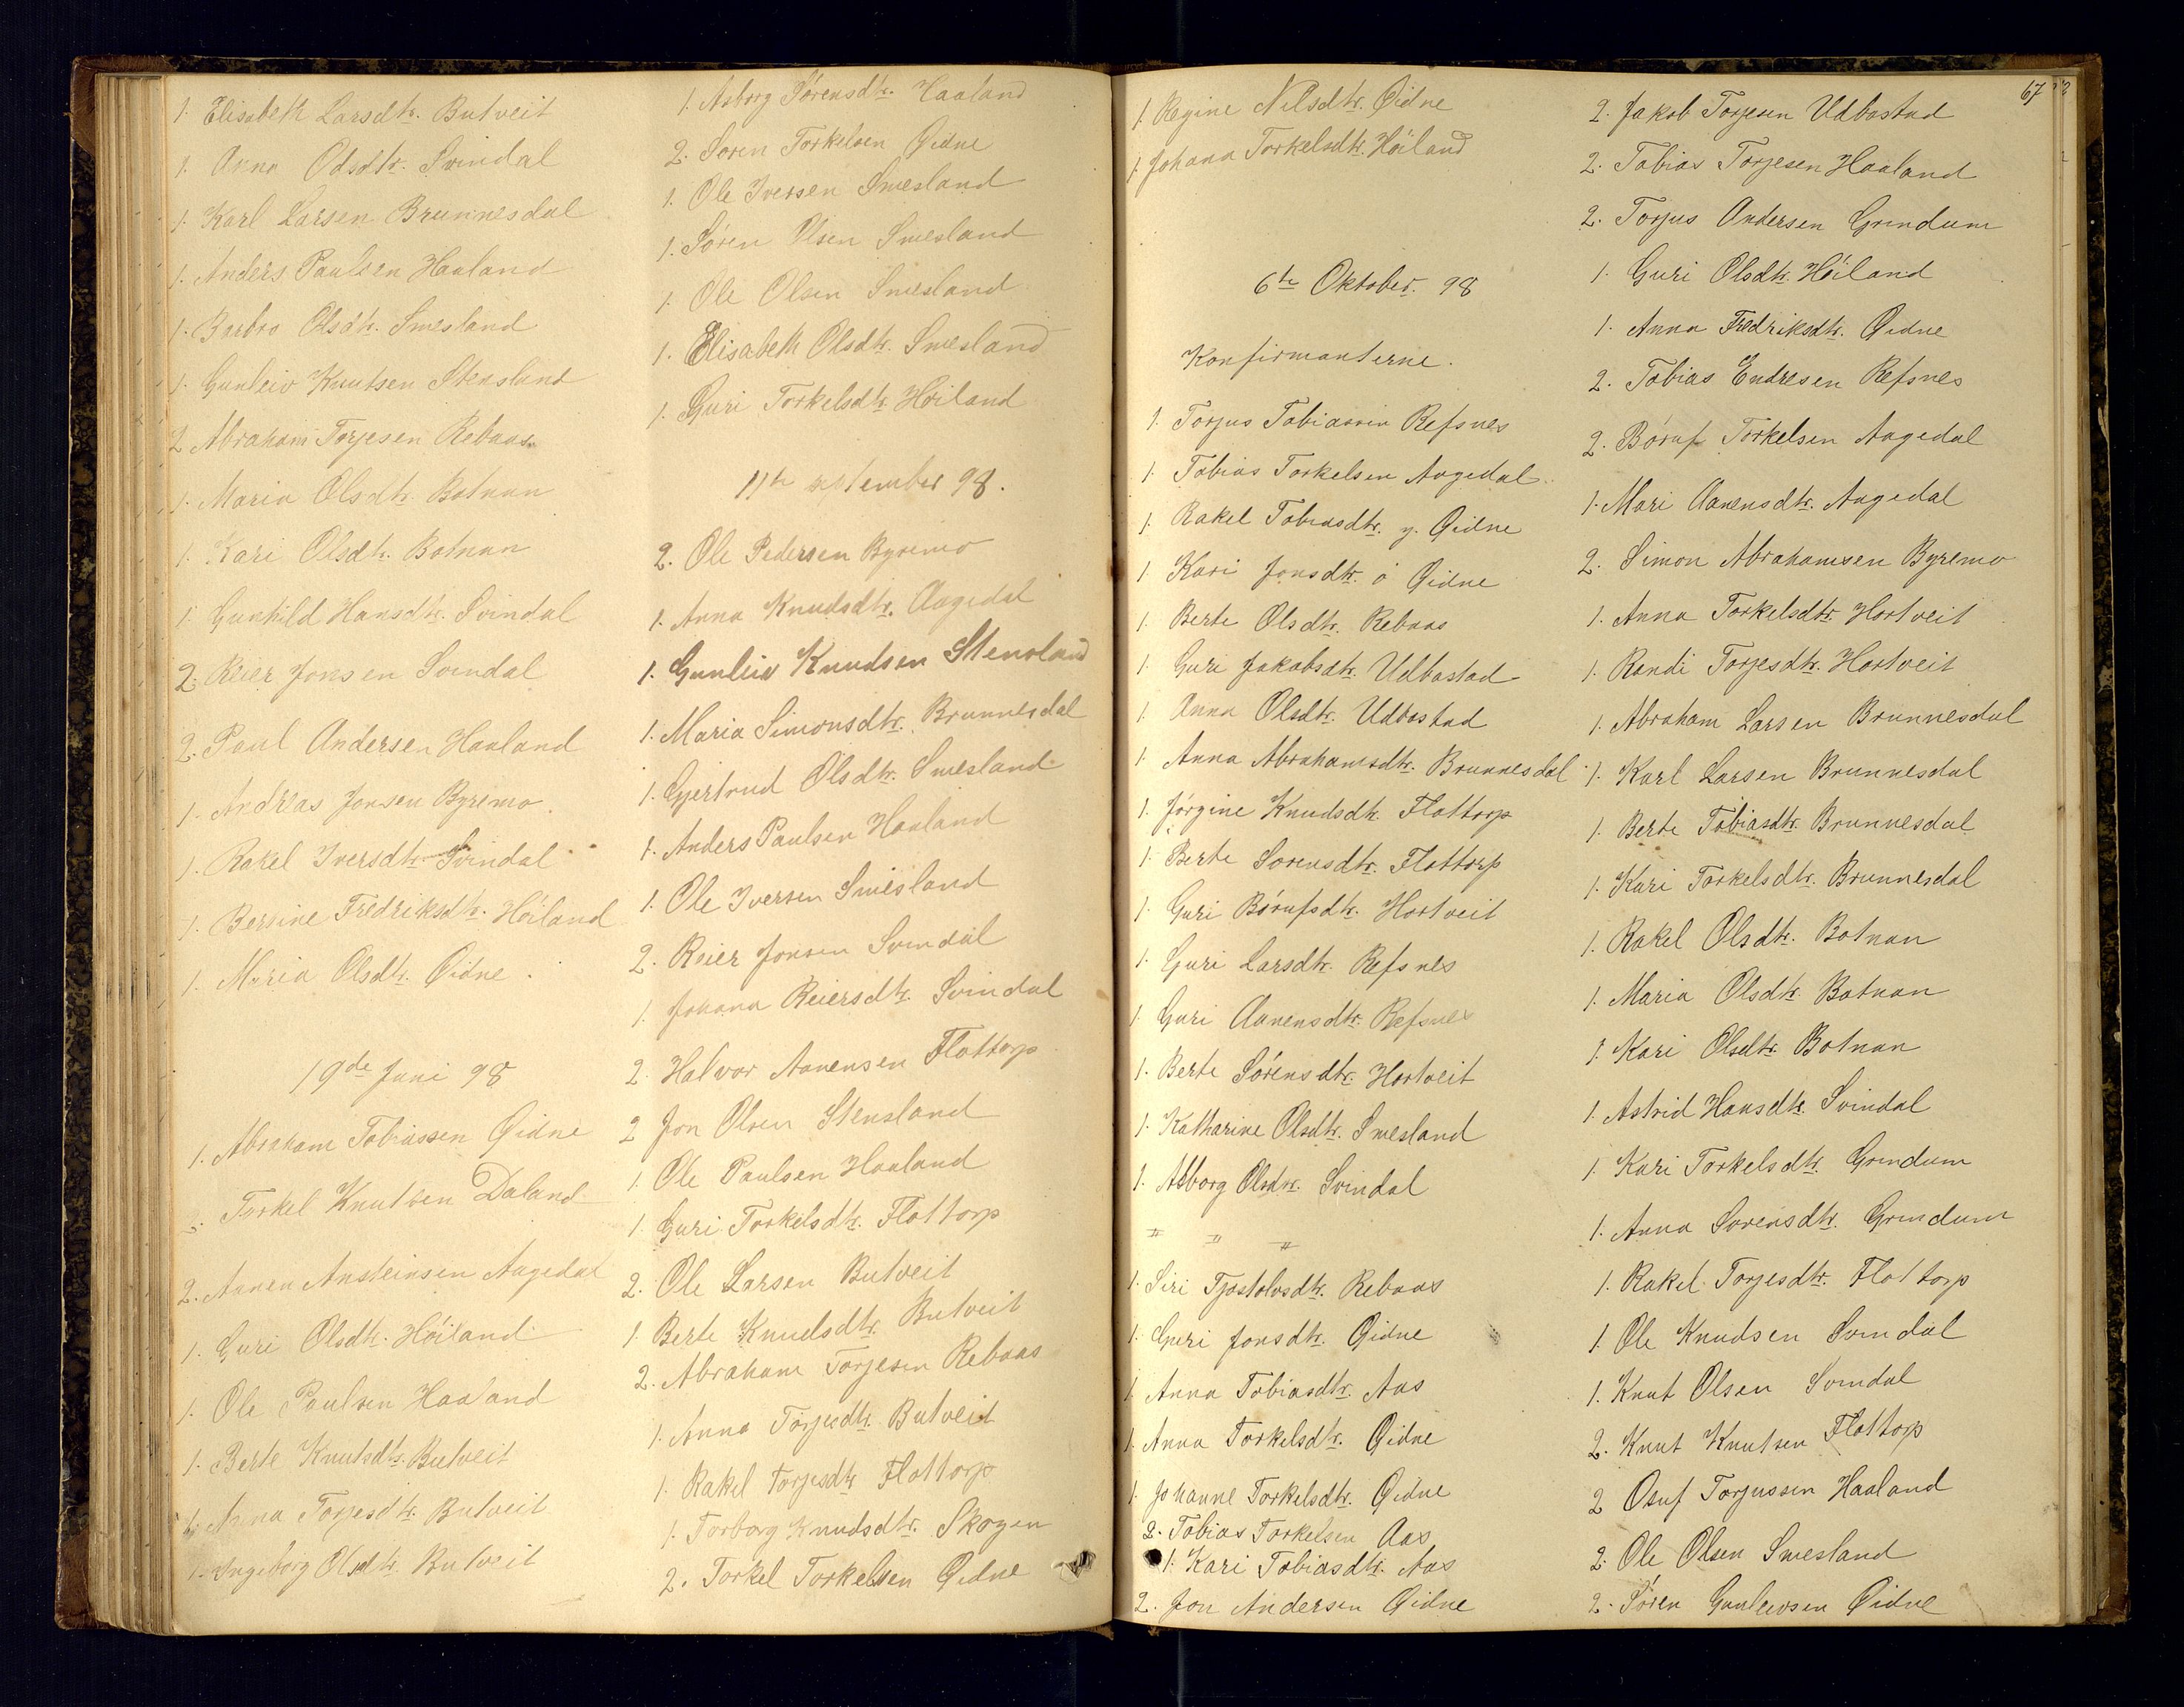 1. Elisabeth Larsdtr. Butveit
1. Anna Odsdtr. Svindal
1. Karl Larsen Brunnesdal
1. Anders Paulsen Haaland
1. Barbro Olsdtr. Smesland
1. Gunleiv Knutsen Stensland
2 Abraham Torjesen Rebaas
1. Maria Olsdtr. Botnan
1. Kari Olsdtr. Botnan
1. Gunhild Hansdtr. Svindal
2. Reier Jonsen Svindal
2. Paul Andersen Haaland
1. Andreas Jonsen Byremo.
1. Rakel Iversdtr. Svindal
1. Bersine Fredriksdtr. Höiland
1. Maria Olsdtr. Øidne.
19de Juni 98
1. Abraham Tobiassen Øidne
2. Torkel Knutsen Daland
2. Aanen Ansteinsen Aagedal
1. Guri Olsdtr. Höiland
1. Ole Paulsen Haaland
1. Berte Knutsdtr. Butveit
1. Anna Torjesdtr. Butveit
1. Ingeborg Olsdtr. Butveit
1. Asborg Sörensdtr. Haaland
2. Sören Torkelsen Øidne
1. Ole Iversen Smesland
1. Sören Olsen Smesland
1. Ole Olsen Smesland
1. Elisabeth Olsdtr. Smesland
1. Guri Torkelsdtr. Höiland
11te september 98.
2. Ole Pedersen Byremo
1. Anna Knudsdtr. Aagedal
1. Gunleiv Knudsen Stensland
1. Maria Simonsdtr. Brunnesdal
1. Gjertrud Olsdtr. Smesland
1. Anders Paulsen Haaland
1. Ole Iversen Smesland
2. Reier Jonsen Svindal
1. Johana Reiersdtr. Svindal
2. Halvor Aanensen Flottorp
2 Jon Olsen Stensland
1. Ole Paulsen Haaland
1. Guri Torkelsdtr. Flottorp
2. Ole Larsen Butveit
1. Berte Knudsdtr. Butveit
2. Abraham Torjesen Rebaas
1. Anna Torjesdtr. Butveit
1. Rakel Torjesdtr Flottorp
1. Torborg Knudsdtr. Skogen
2. Torkel Torkelsen Øidne
1. Regine Nilsdtr. Øidne
1. Johana Torkelsdtr. Höiland
6te Oktober. 98
Konfirmanterne.
1. Torjus Tobiassen Refsnes
1. Tobias Torkelsen Aagedal
1. Rakel Tobiasdtr. y. Øidne
1. Kari Jonsdtr. ö Øidne
1 Berte Olsdtr. Rebaas
1. Guri Jakobsdtr. Udbostad
1 Anna Olsdtr. Udbostad
1. Anna Abrahamsdtr. Brunnesdal
1. Jörgine Knudsdtr. Flottorp
1. Berte Sorensdtr. Flottorp
1. Guri Börufsdtr. Hortveit
1. Guri Larsdtr. Refsnes
1. Guri Aanensdtr. Refsnes
1. Berte Sörensdtr. Hortveit
1. Katharine Olsdtr. Smesland
1. Asborg Olsdtr. Svindal
" " "
1. Siri Tjostolvsdtr. Rebaas
1. Guri Jonsdtr. Øidne
1. Anna Tobiasdtr. Aas
1. Anna Torkelsdtr. Øidne
1. Johanne Torkelsdtr. Øidne
2. Tobias Torkelsen Aas
1. Kari Tobiasdtr. Aas
2. Jon Andersen Øidne
67
2. Jakob Torjesen Udbostad
2. Tobias Torjesen Haaland
2. Torjus Andersen Grindum
1. Guri Olsdtr. Höiland
1. Anna Fredriksdtr. Øidne
2. Tobias Endresen Refsnes
2. Böruf Torkelsen Aagedal
1. Mari Aanensdtr. Aagedal
2. Simon Abrahamsen Byremo
1. Anna Torkelsdtr. Hortveit
1. Randi Torjesdtr. Hortveit
1. Abraham Larsen Brunnesdal
1. Karl Larsen Brunnesdal
1. Berte Tobiasdtr. Brunnesdal
1. Kari Torkelsdtr. Brunnesdal
1. Rakel Olsdtr. Botnan
1. Maria Olsdtr. Botnan
1. Kari Olsdtr. Botnan
1. Astrid Hansdtr. Svindal
1. Kari Torkelsdtr. Grindum
1. Anna Sorensdtr. Grindum
1. Rakel Torjesdtr. Flottorp
1. Ole Knudsen Svindal
1. Knut Olsen Svindal
2. Knut Knutsen Flottorp
2 Osuf Torjussen Haaland
2. Ole Olsen Smesland
2. Sören Gunleivsen Øidne